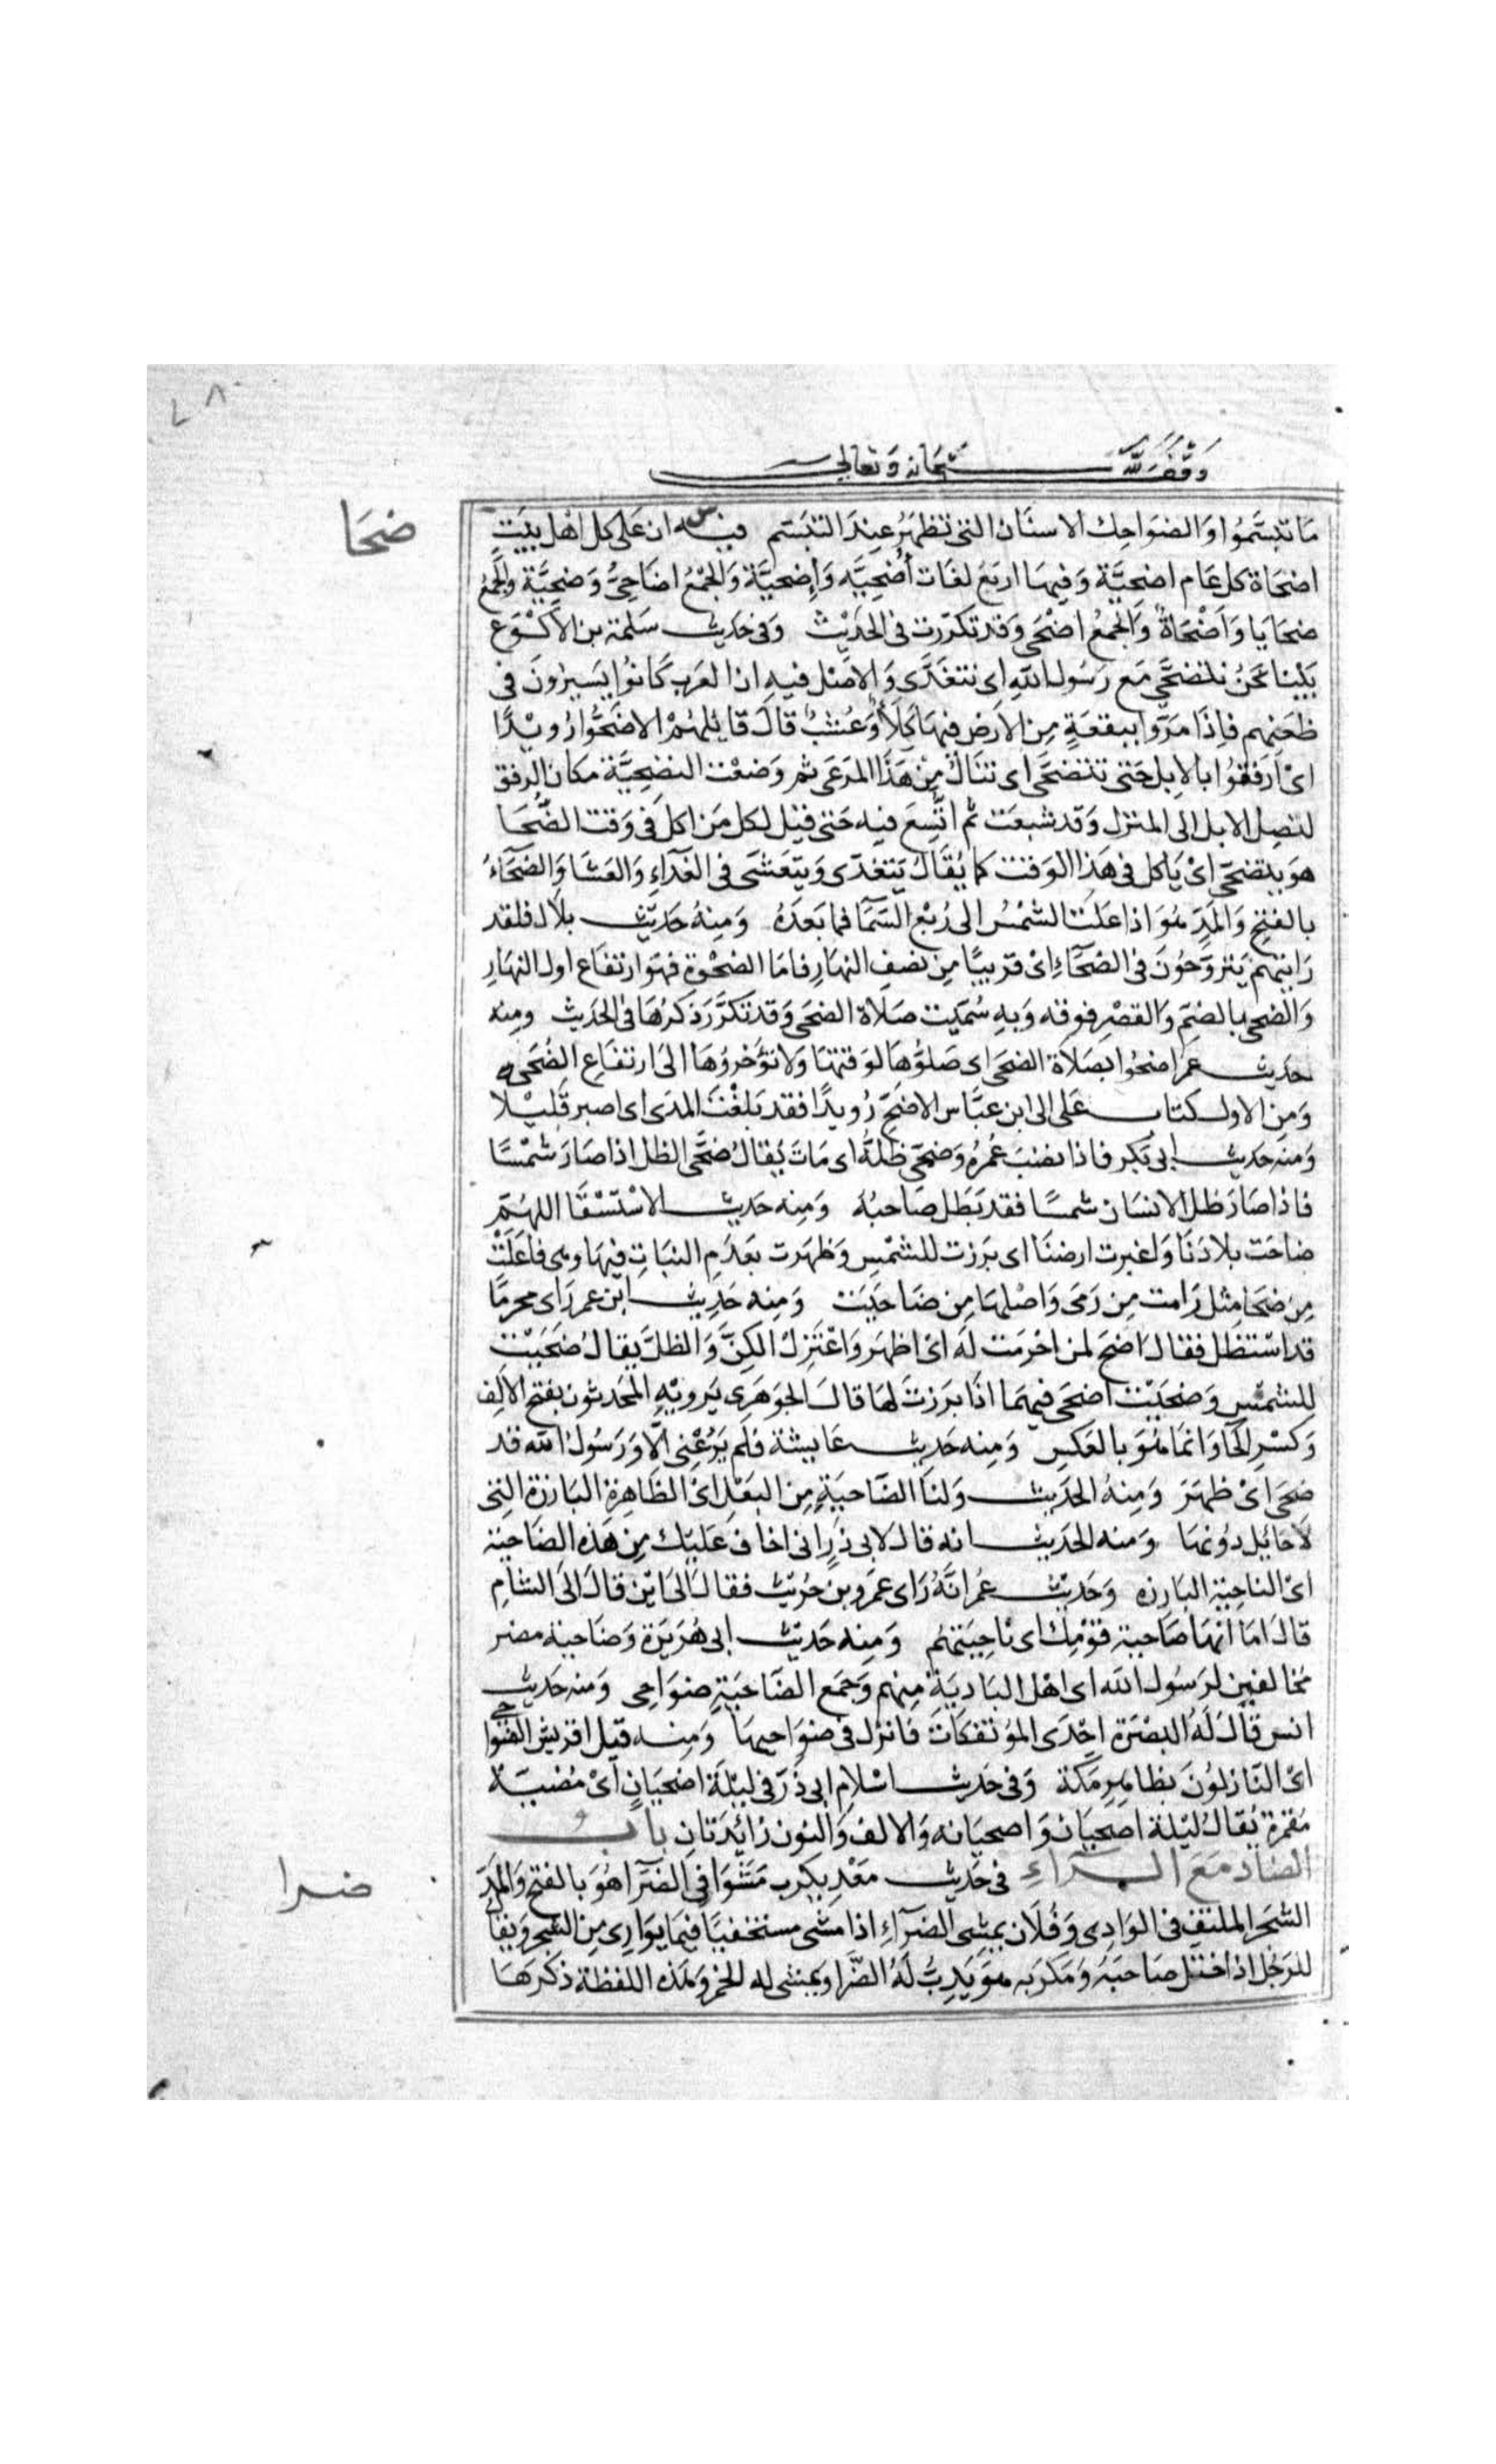 ٧٨
وقف لله سبحانه وتعالى
ضحا
ما تبسموا والضواحك الاسنان التى تظهر عند التبسم فيه س ان على كل اهل بيت
اضحاة كل عام اضحية وفيها اربع لغات أُضحيه وإضحية والجمع اضاحىُّ وضحيَّة والجمع
ضحايا وَاضْحاةٌ والجمع اضحى وقد تكررت فى الحديث وفى حديث سلمة بن الاكوع
بينا نحن نتضحى مع رسول الله اى نتغدى والاصل فيه ان العرب كانوا يسيرون فى
ظعنهم فاذا مروا ببقعة من الارض فيها كلأ وعُشبٌ قال قائلهم الا ضحوا رويدًا
اى ارفقوا بالابل حتى تتضحى اى تنال من هذا المرعى ثم وضعت التضحية مكان الرفق
لتصل الابل الى المنزل وقد شبعت ثم اتُّسِعَ فيه حتى قيل لكل من اكل فى وقت الضُّحا
هو يتضحى اى ياكل فى هذا الوقت كما يقال يتغدى ويتعشى فى الغدآء والعشا والضحآء
بالفتح والمد هو اذا علت الشمس الى ربع السما فما بعده ومنه حديث بلال فلقد
رايتهم يتروحون فى الضحآء اى قريبًا من نصف النهار فاما الضحوة فهو ارتفاع اول النهار
والضحى بالضم والقصر فوقه وبه سميت صلاة الضحى وقد تكرر ذكرها فى الحديث ومنه
حديث عمر اضحوا بصلاة الضحى اى صلوها لوقتها ولا تؤخروها الى ارتفاع الضُحى
ومن الاول كتاب على الى ابن عباس الا ضحِّ رويدًا فقد بلغت المدى اى اصبر قليلا
ومنه حديث ابى بكر فاذا نضب عمره وضحى ظله اى مات يقال ضحى الظل اذا صار شمسًا
فاذا صار ظل الانسان شمسًا فقد بَطَل صاحبُه ومنه حديث الاستسقا اللهم
ضاحت بلادنا واغبرت ارضنا اى برزت للشمس وظهرت بعدم النبات فيها وهى فاعلت
من ضحا مثل رامت من رمى واصلها من ضاحيت ومنه حديث ابن عمر راى محرمًا
قد استظل فقال اضح لمن احرمت له اى اظهر واعتزل الكِنَّ والظلَّ يقال ضحيت
للشمس وضحيت اضحى فيهما اذا برزت لها قال الجوهرى يرويه المحدثون بفتح الالف
وكسر الحا وانما هو بالعكس ومنه حديث عايشة فلم يرعنى الا ورسول الله قد
ضحى اى ظهر ومنه الحديث ولنا الضاحية من البعل اى الظاهرة البارزة التى
لا حائل دونها ومنه الحديث انه قال لابى ذر انى اخاف عليك من هذه الضاحية
اى الناحية البارزه وحديث عمر انه راى عمرو بن حريث فقال الى اين قال الى الشام
قال اما انها ضاحية قومك اى ناحيتهم ومنه حديث ابى هريرة وضاحية مضر
مخالفين لرسول الله اى اهل البادية منهم وجمع الضاحية ضواحى ومنه حديث
انس قال له البصرة احدى المؤتفكات فانزل فى ضواحيها ومنه قيل لقريش الضواحى
اى النازلون بظاهر مكة وفى حديث اسلام ابى ذر فى ليلة اضحيان اى مضيئة
مقمرة يقال ليلة اضحيان واضحيانه والالف والنون زائدتان باب
الضاد مع الراء فى حديث معديكرب مشوا فى الضرا هو بالفتح والمد
ضرا
الشجر الملتف فى الوادى وفلان يمشى الضرآء اذا مشى مستخفيًا فيما يوارى من الشجر ويقال
للرجل اذا ختل صاحبه ومكر به هو يدب له الضرا ويمشى له الخمر وهذه اللفظة ذكرها